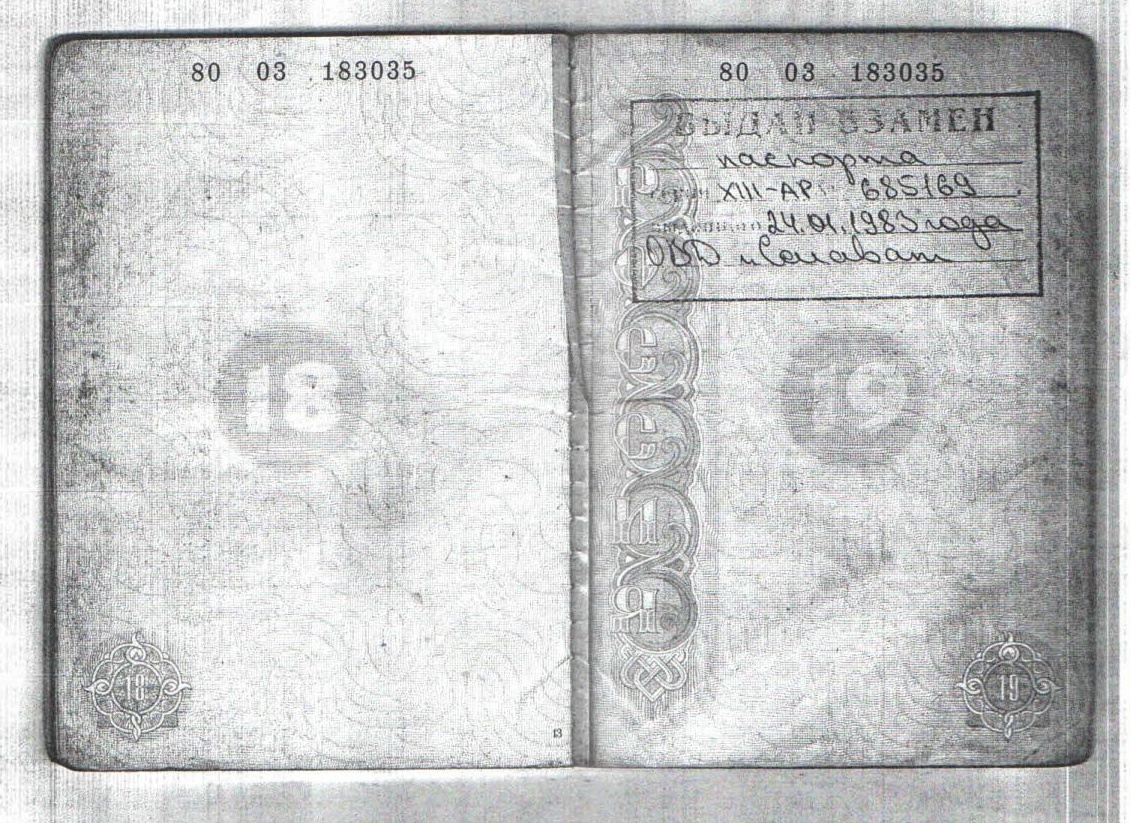 80 03 183035
18
18
13
80 03 183035
ВЫДАН ВЗАМЕН
паспорта
серии XIII-АР № 685169
выданного 24.01.1983 года
ОВД г. Салават
РОССИЯ
19
19